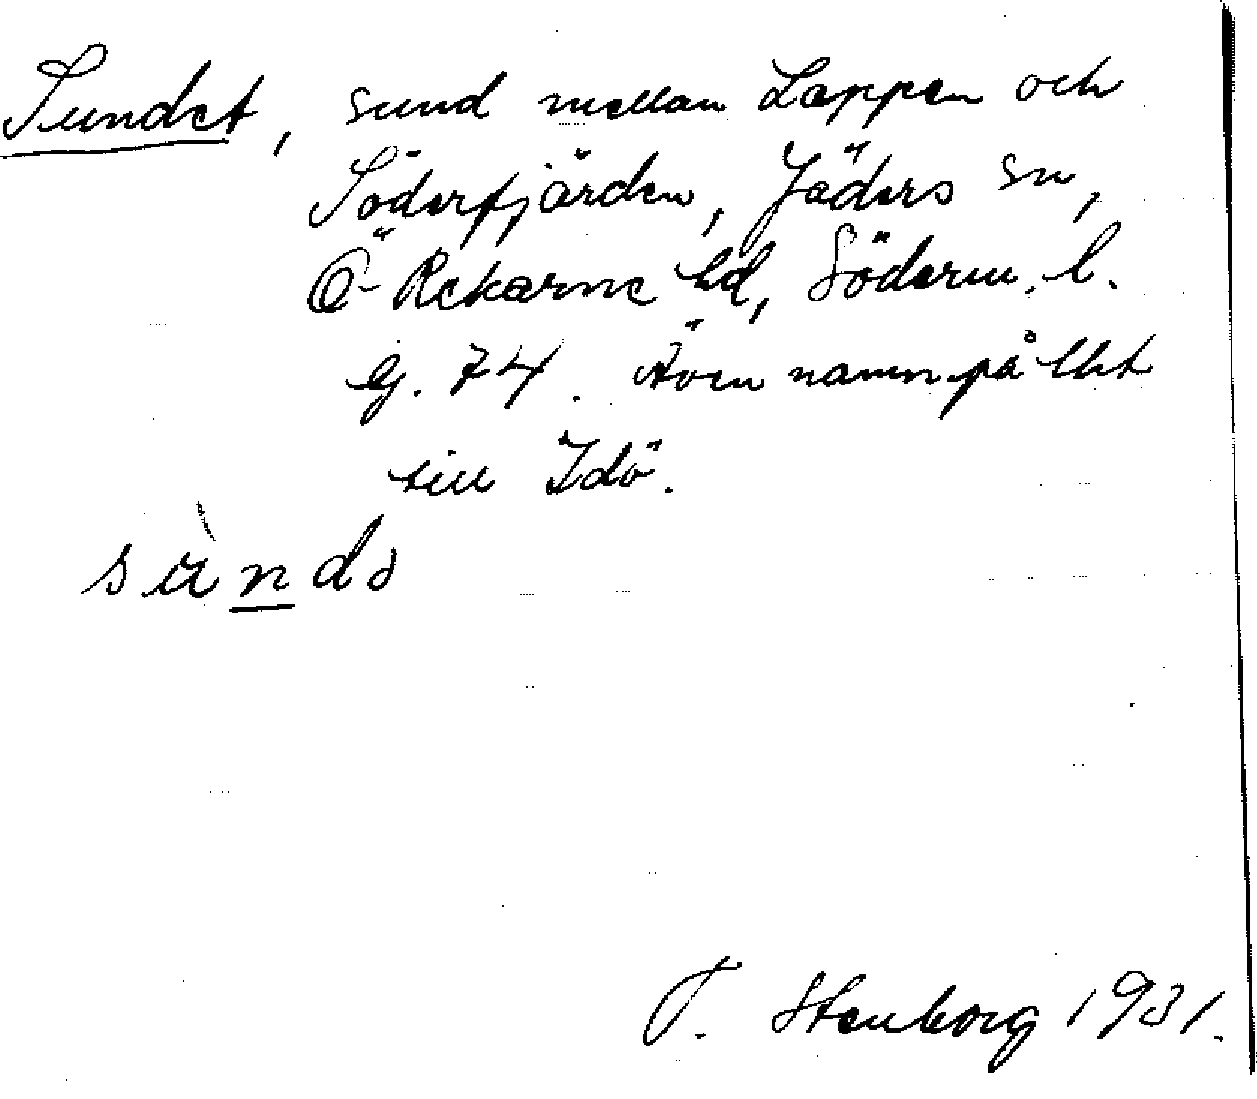 Sundet, sund mellan Lappen och
Söderfjärden, Jäders sn,
Ö-Rekarne hd, Söderm. l.
G. 74. Även namn på lht
till Idö.
sùndə
T. Stenborg 1931.